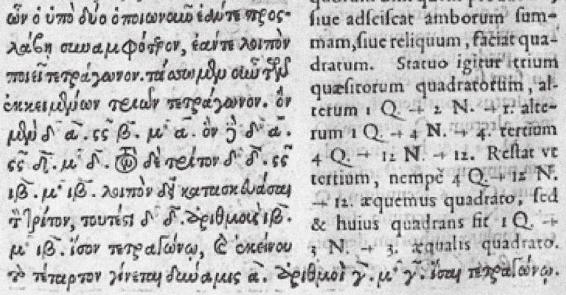 ὧν ὁ ὑπὸ δύο ὁποιωνοῦν ἐάντε προσ-
λάβῃ συναμφότερον, ἐάντε λοιπὸν
ποιεῖ τετράγωνον. τάσσω μὲν οὖν τῶν
ἐκκειμένων τριῶν τετράγωνον. ὃν
μὲν δ^υ ᾱ. ςς β̄. μ° ᾱ. ὃν δὲ δ^υ ᾱ.
ςς δ̄. μ° δ̄. τὸν δὲ τρίτον δ^υ δ̄. ςς
ιβ̄. μ° ιβ̄. λοιπὸν δεῖ κατασκευάσαι
τὸν τρίτον, τουτέστι δ^υ δ̄. ἀριθμοὺς ιβ̄.
μ° ιβ̄. ἴσον τετραγώνῳ, καὶ ἐκείνου
τὸ τέταρτον γίνεται δυνάμεις ᾱ. ἀριθμοὶ γ̄. μ° γ̄. ἴσαι τετραγώνῳ.
siue adsciscat amborum sum-
mam, siue reliquum, faciat qua-
dratum. Statuo igitur trium
quæsitorum quadratorum, al-
terum 1 Q. + 2 N. + 1. alte-
rum 1 Q. + 4 N. + 4. tertium
4 Q. + 12 N. + 12. Restat vt
tertium, nempè 4 Q. + 12 N.
+ 12. æquemus quadrato, sed
& huius quadrans sit 1 Q. +
3 N. + 3. æqualis quadrato.